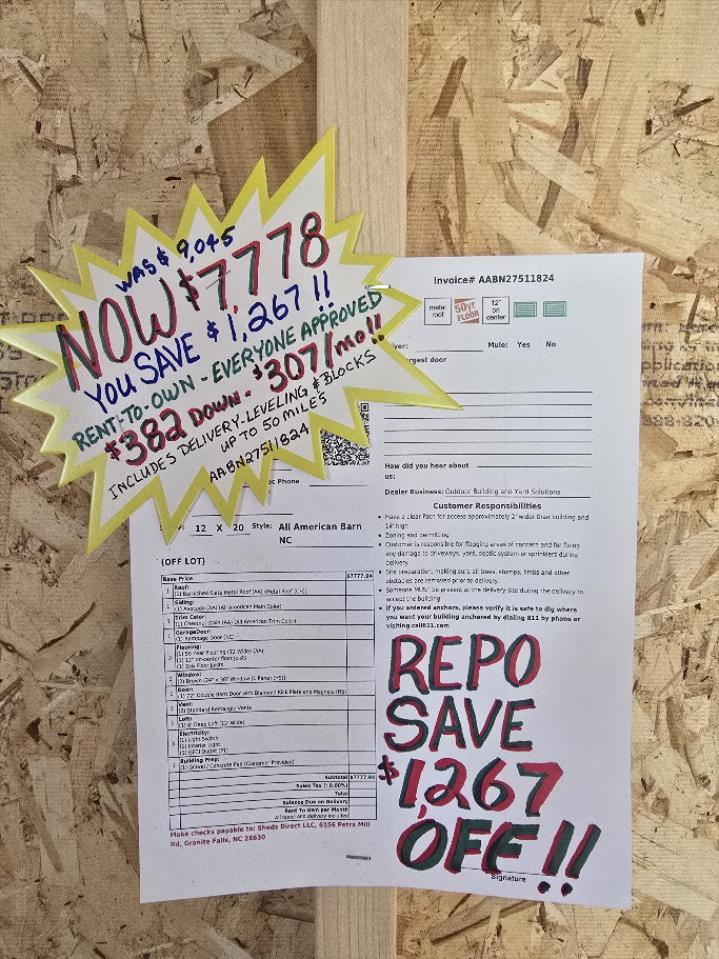 WAS $ 9,045
NOW $7,778
YOU SAVE $1,267!!
RENT-TO-OWN - EVERYONE APPROVED
$382 DOWN - $307/mo!!
INCLUDES DELIVERY-LEVELING & BLOCKS
UP TO 50 MILES
AABN27511824
Invoice# AABN27511824
metal roof
50YR FLOOR
12" on center
Mule: Yes No
argest door
How did you hear about
us:
Dealer Business: Outdoor Building and Yard Solutions
Customer Responsibilities
Have a clear Path for access approximately 2' wider than building and
14' high
Zoning and permitting
Customer is responsible for flagging areas of concern and for fixing
any damage to driveways, yard, septic system or sprinklers during
delivery
Site preparation, making sure all trees, stumps, limbs and other
obstacles are removed prior to delivery
Someone MUST be present at the delivery site during the delivery to
accept the building
If you ordered anchors, please verify it is safe to dig where
you want your building anchored by dialing 811 by phone or
visiting call811.com
Phone
12 X 20 Style: All American Barn
NC
(OFF LOT)
Base Price $7777.94
Roof:
(1) Burnished Slate Metal Roof (AA) (Metal Roof
Siding:
(1) Avocado (AA) (All American Main Color)
Trim Color:
(1) Chestnut Stain (AA) (All American Trim Color)
GarageDoor:
Flooring:
(1) 50 Year Flooring (12 Wide) (AA)
(1) 12" on-center floor joists
(1) 2x6 Floor Joists
Window:
Door:
(1) 72" Double Barn Door with Diamond Kick Plate and Magnets
Vent:
(2) Standard Rectangle Vents
Loft:
Deep Loft (12' Wide)
Electricity:
(1) Light Switch
(1) Interior Light
(1) GFCI Outlet
Building Prep:
(1) Gravel / Concrete Pad (Customer Provided)
Subtotal $7777.94
Sales Tax
Total
Balance Due on Delivery
Rent To Own per Month
Make checks payable to: Sheds Direct LLC, 6156 Petra Mill
Rd, Granite Falls, NC 28630
REPO
SAVE
$1,267
OFF!!
Signature